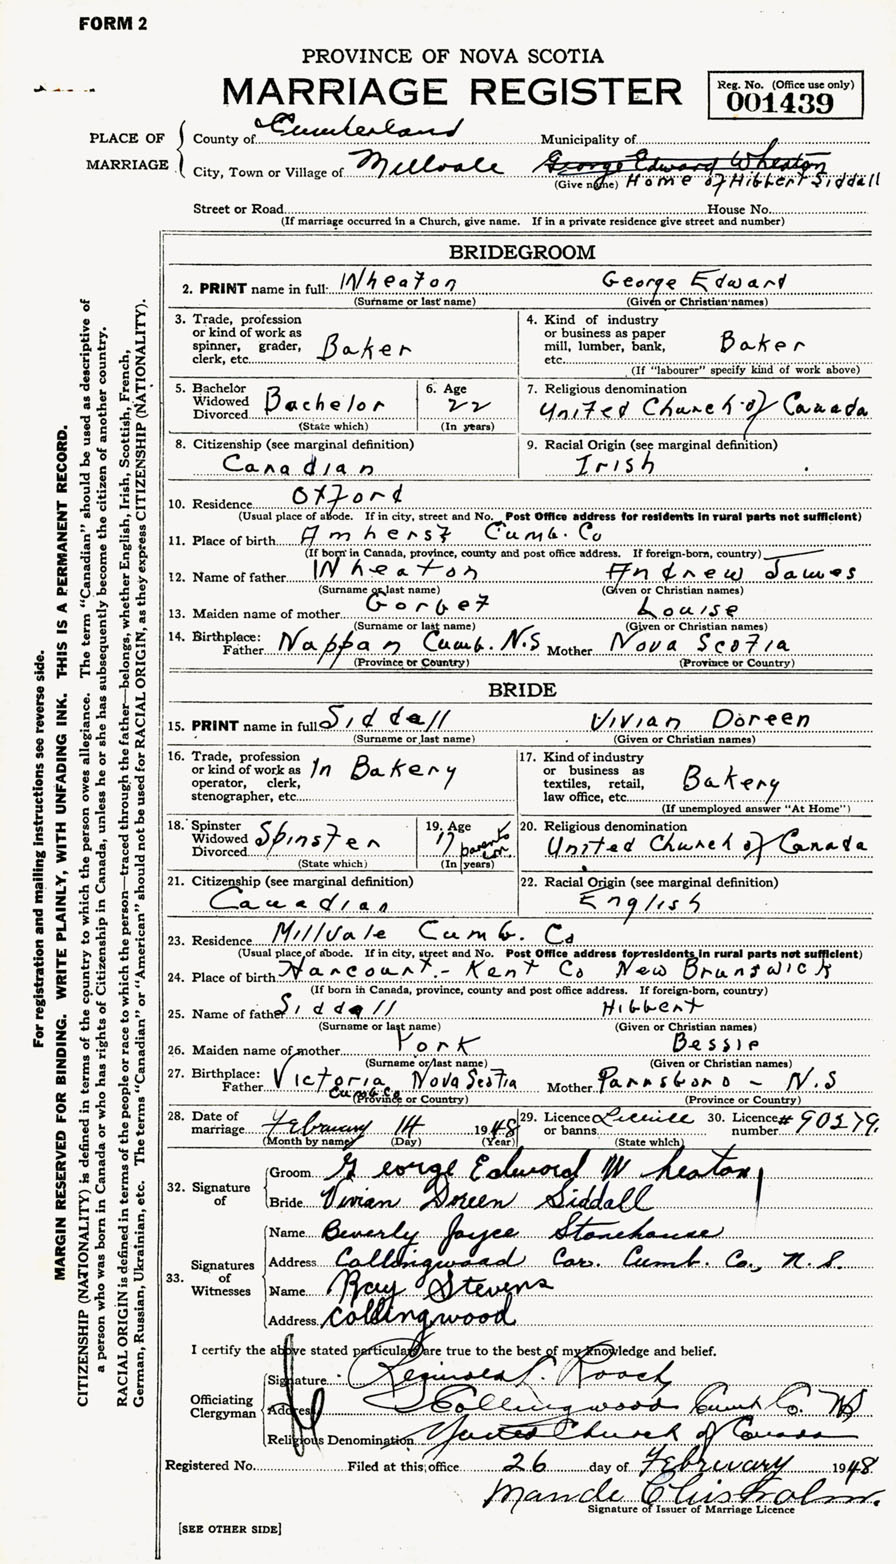 FORM 2
PROVINCE OF NOVA SCOTIA
MARRIAGE REGISTER
Reg. No. (Office use only)
001439
PLACE OF MARRIAGE
County of Cumberland Municipality of
City, Town or Village of Millvale George Edward Wheaton
(Give name) Home of Hibbert Siddall
Street or Road House No.
(If marriage occurred in a Church, give name. If in a private residence give street and number)
BRIDEGROOM
2. PRINT name in full: Wheaton George Edward
(Surname or last name) (Given or Christian names)
3. Trade, profession or kind of work as spinner, grader, clerk, etc. Baker
4. Kind of industry or business as paper mill, lumber, bank, etc. Baker
(If "labourer" specify kind of work above)
5. Bachelor Widowed Divorced Bachelor
(State which)
6. Age 22
(In years)
7. Religious denomination
United Church of Canada
8. Citizenship (see marginal definition)
Canadian
9. Racial Origin (see marginal definition)
Irish
10. Residence Oxford
(Usual place of abode. If in city, street and No. Post Office address for residents in rural parts not sufficient)
11. Place of birth Amherst Cumb. Co
(If born in Canada, province, county and post office address. If foreign-born, country)
12. Name of father Wheaton Andrew James
(Surname or last name) (Given or Christian names)
13. Maiden name of mother Gorbet Louise
(Surname or last name) (Given or Christian names)
14. Birthplace: Father Nappan Cumb. N.S Mother Nova Scotia
(Province or Country) (Province or Country)
BRIDE
15. PRINT name in full Siddall Vivian Doreen
(Surname or last name) (Given or Christian names)
16. Trade, profession or kind of work as operator, clerk, stenographer, etc. In Bakery
17. Kind of industry or business as textiles, retail, law office, etc. Bakery
(If unemployed answer "At Home")
18. Spinster Widowed Divorced Spinster
(State which)
19. Age 17 parents con.
(In years)
20. Religious denomination
United Church of Canada
21. Citizenship (see marginal definition)
Canadian
22. Racial Origin (see marginal definition)
English
23. Residence Millvale Cumb. Co
(Usual place of abode. If in city, street and No. Post Office address for residents in rural parts not sufficient)
24. Place of birth Harcourt - Kent Co New Brunswick
(If born in Canada, province, county and post office address. If foreign-born, country)
25. Name of father Siddall Hibbert
(Surname or last name) (Given or Christian names)
26. Maiden name of mother York Bessie
(Surname or last name) (Given or Christian names)
27. Birthplace: Father Victoria Nova Scotia Mother Parrsboro - N.S
Cumb. Co
(Province or Country) (Province or Country)
28. Date of marriage February 14 1948
(Month by name) (Day) (Year)
29. Licence or banns Licence
(State which)
30. Licence number #90279
32. Signature of
Groom George Edward Wheaton
Bride Vivian Doreen Siddall
33. Signatures of Witnesses
Name Beverly Joyce Stonehouse
Address Collingwood Cor. Cumb. Co., N.S.
Name Ray Stevens
Address Collingwood
I certify the above stated particulars are true to the best of my knowledge and belief.
Officiating Clergyman
Signature Reginald Roach
Address Collingwood Cumb Co. NS
Religious Denomination United Church of Canada
Registered No. Filed at this office 26 day of February 1948
Maude Chisholm.
Signature of Issuer of Marriage Licence
[SEE OTHER SIDE]
For registration and mailing instructions see reverse side.
MARGIN RESERVED FOR BINDING. WRITE PLAINLY, WITH UNFADING INK. THIS IS A PERMANENT RECORD.
CITIZENSHIP (NATIONALITY) is defined in terms of the country to which the person owes allegiance. The term "Canadian" should be used as descriptive of
a person who was born in Canada or who has rights of Citizenship in Canada, unless he or she has subsequently become the citizen of another country.
RACIAL ORIGIN is defined in terms of the people or race to which the person—traced through the father—belongs, whether English, Irish, Scottish, French,
German, Russian, Ukrainian, etc. The terms "Canadian" or "American" should not be used for RACIAL ORIGIN, as they express CITIZENSHIP (NATIONALITY).